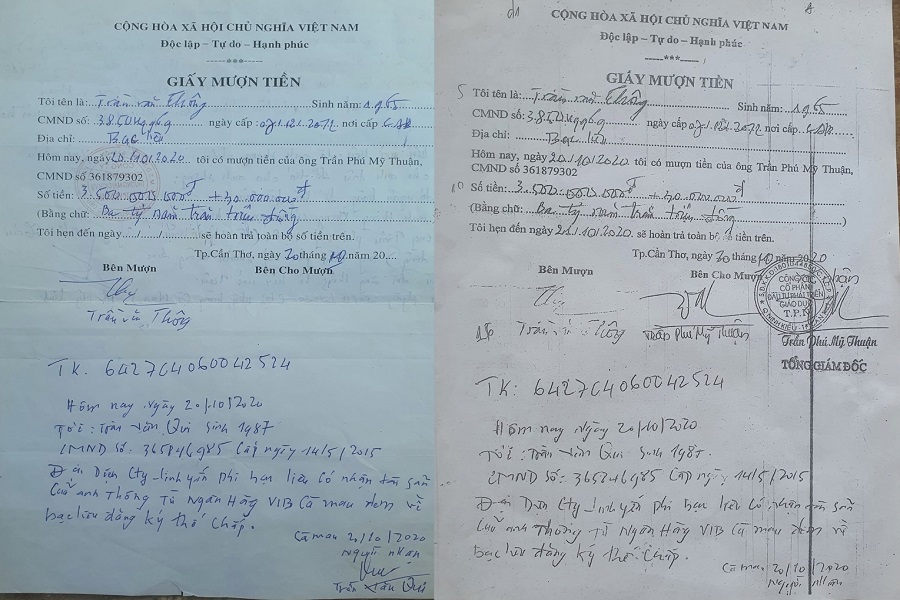 CỘNG HÒA XÃ HỘI CHỦ NGHĨA VIỆT NAM
Độc lập – Tự do – Hạnh phúc
-----***-----
GIẤY MƯỢN TIỀN
Tôi tên là:...Trần văn Thông Sinh năm: 1965
CMND số: ngày cấp nơi cấp
Địa chỉ: Bạc liêu
Hôm nay, ngày 20/10/2020 tôi có mượn tiền của ông Trần Phú Mỹ Thuận,
CMND số 361879302
Số tiền: 3.500.000.000đ + 30.000.000đ
(Bằng chữ: Ba tỷ năm trăm triệu đồng)
Tôi hẹn đến ngày...../...../..........sẽ hoàn trả toàn bộ số tiền trên.
Tp.Cần Thơ, ngày 20 tháng 10 năm 20....
Bên Mượn Bên Cho Mượn
Trần văn Thông
TK. 642704060042524
Hôm nay ngày 20/10/2020
Tôi: Trần Văn Qui Sinh 1987
CMND Số: 365746985 Cấp ngày 14/5/2015
Đại Diện Cty linh yến phi hạc liêu có nhận tài sản
của anh Thông Từ Ngân Hàng VIB Cà mau đem về
bạc liêu đăng ký thế chấp.
Cà mau 20/10/2020
Người nhận
Trần Văn Qui
CỘNG HÒA XÃ HỘI CHỦ NGHĨA VIỆT NAM
Độc lập – Tự do – Hạnh phúc
-----***-----
GIẤY MƯỢN TIỀN
5 Tôi tên là:...Trần văn Thông Sinh năm: 1965
CMND số: ngày cấp nơi cấp
Địa chỉ: Bạc liêu
Hôm nay, ngày 20/10/2020 tôi có mượn tiền của ông Trần Phú Mỹ Thuận,
CMND số 361879302
10 Số tiền: 3.500.000.000đ + 30.000.000đ
(Bằng chữ: Ba tỷ năm trăm triệu đồng)
Tôi hẹn đến ngày 21/10/2020 sẽ hoàn trả toàn bộ số tiền trên.
Tp.Cần Thơ, ngày 20 tháng 10 năm 2020
Bên Mượn Bên Cho Mượn
CÔNG TY
CỔ PHẦN
ĐẦU TƯ PHÁT TRIỂN
GIÁO DỤC
T.P.N
Trần văn Thông Trần Phú Mỹ Thuận
Trần Phú Mỹ Thuận
TỔNG GIÁM ĐỐC
TK: 642704060042524
Hôm nay Ngày 20/10/2020
Tôi: Trần Văn Qui Sinh 1987
CMND Số: 365746985 Cấp ngày 14/5/2015
Đại Diện Cty linh yến phi hạc liêu có nhận tài sản
của anh Thông Từ Ngân Hàng VIB Cà mau đem về
bạc liêu đăng ký thế chấp.
Cà mau 20/10/2020
Người nhận